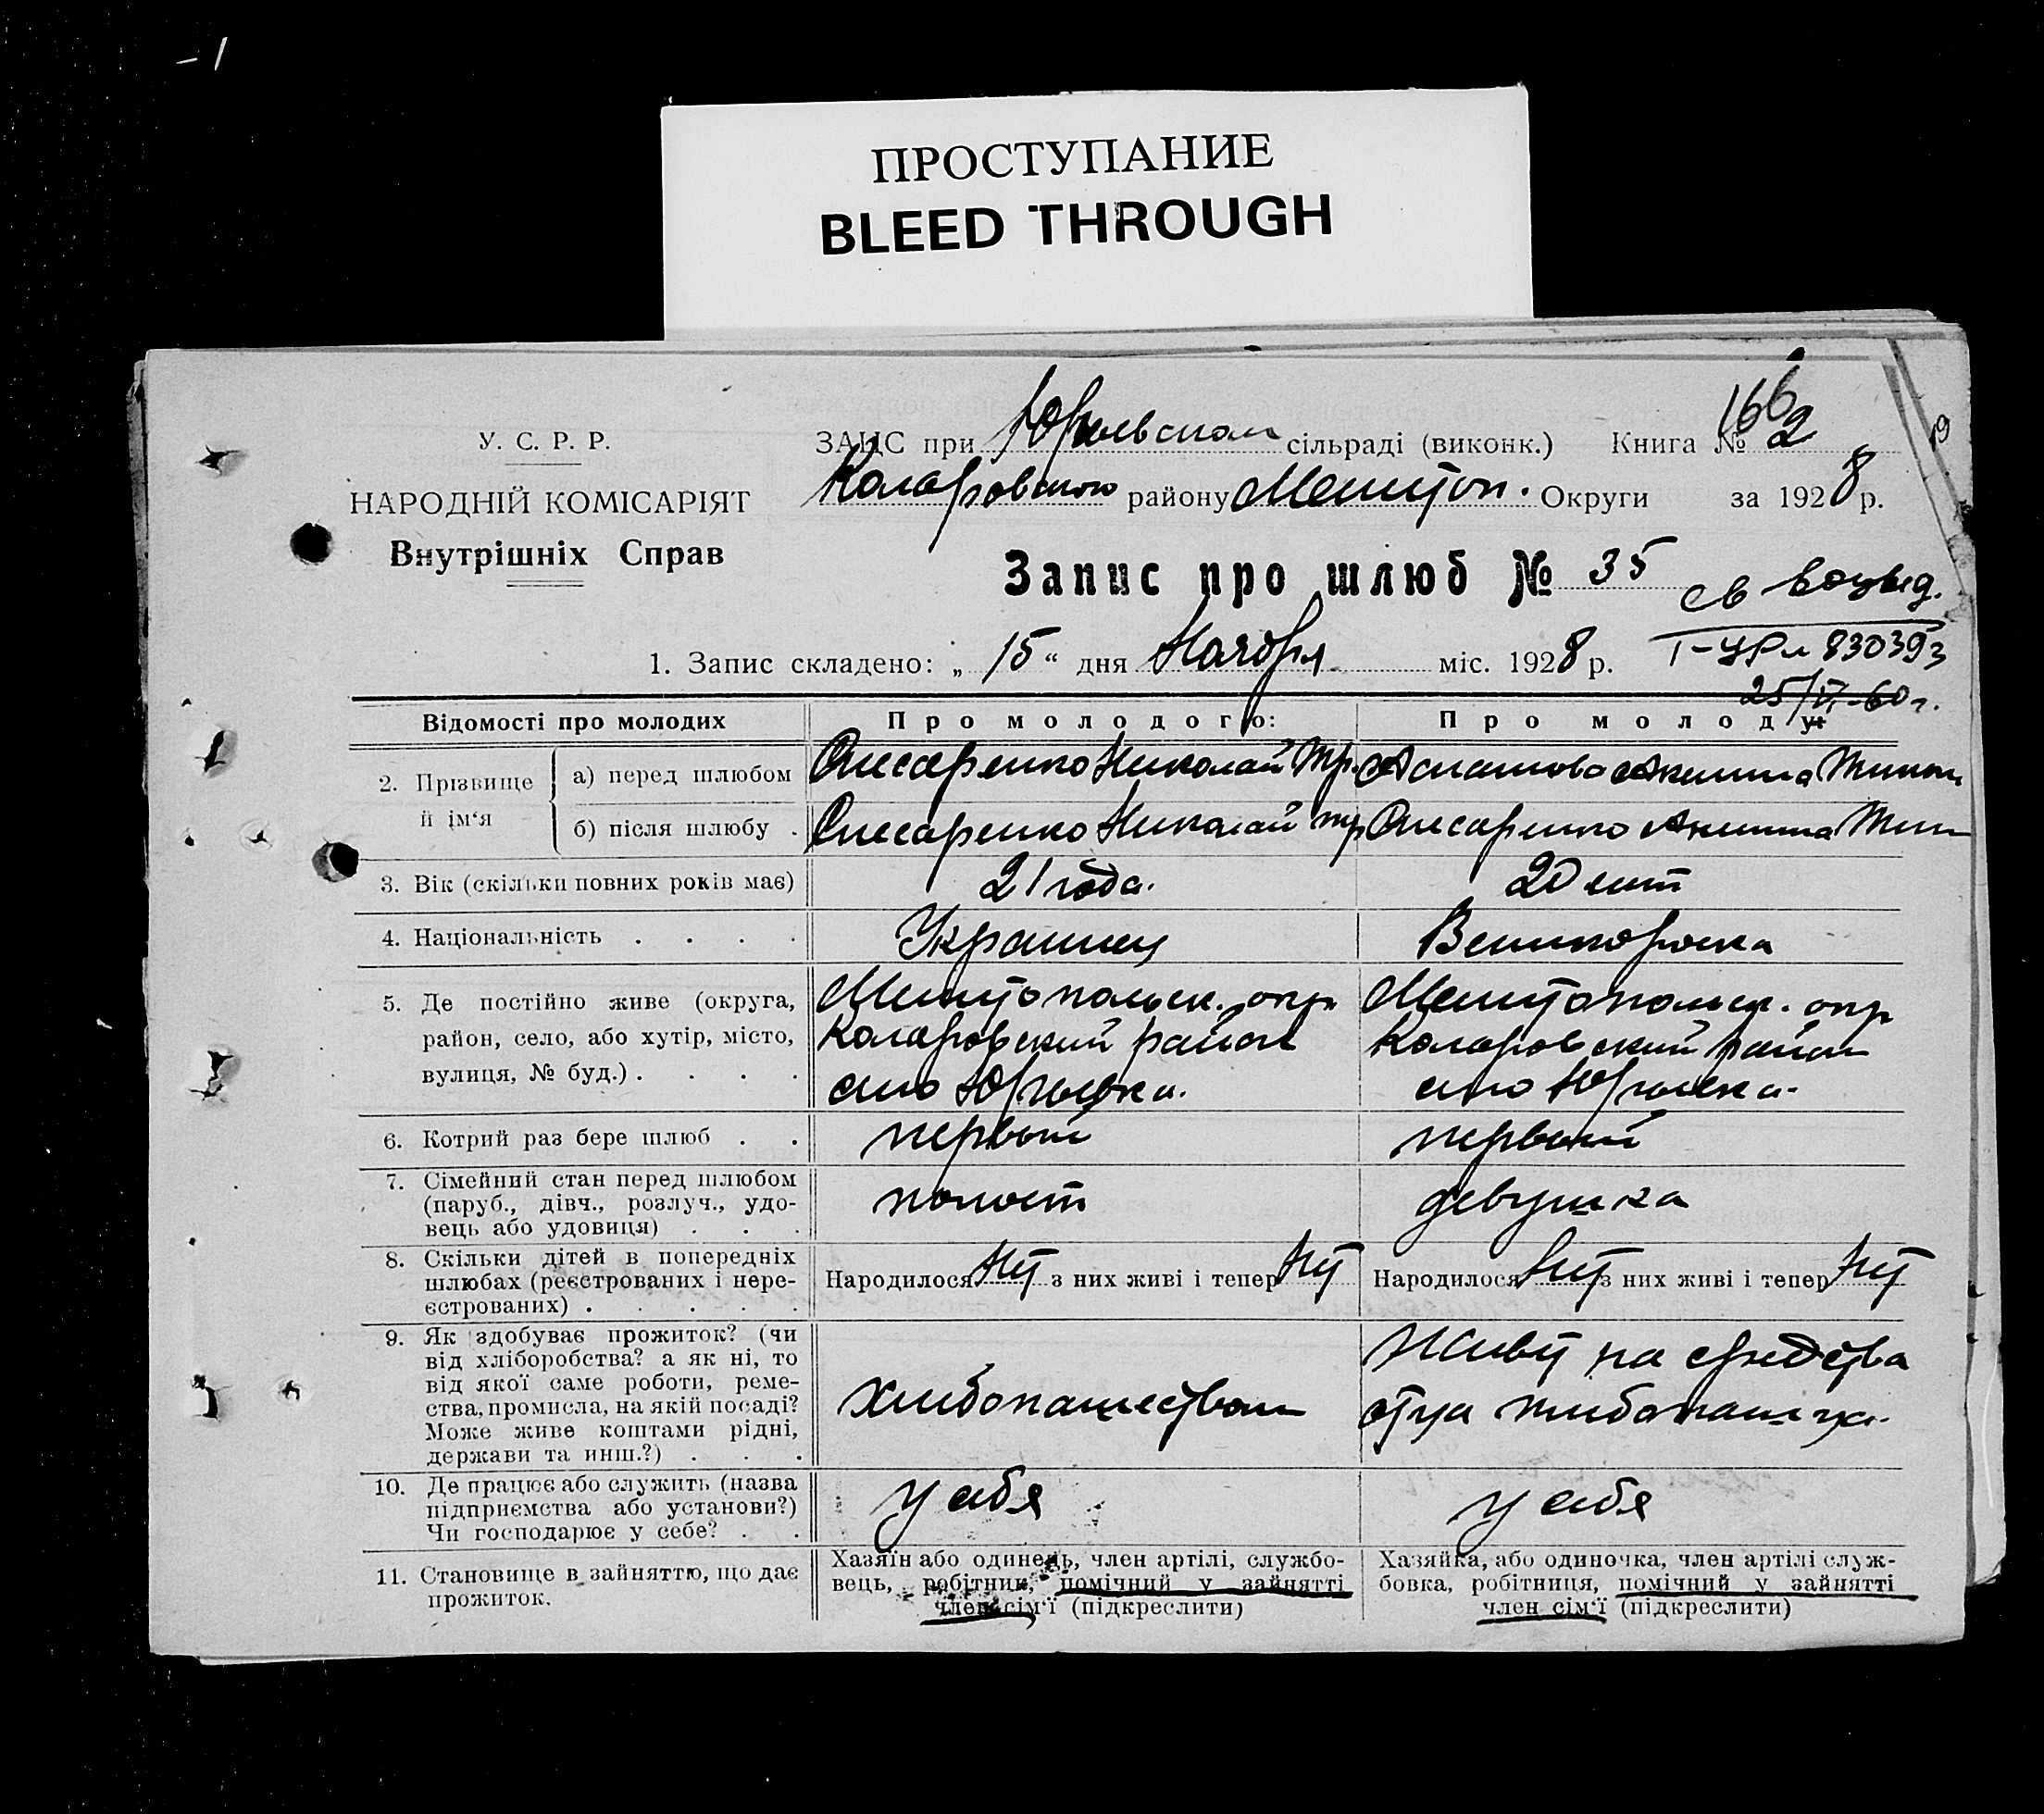 ПРОСТУПАНИЕ
BLEED THROUGH
166
У. С. Р. Р.
ЗАЦС при Юрьевском сільраді (виконк.) Книга № 2
НАРОДНІЙ КОМІСАРІЯТ
Коларовского району Мелитоп. Округи за 1928 р.
Внутрішніх Справ
Запис про шлюб № 35
св выд.
1. Запис складено: „ 15 “ дня Ноября міс. 1928 р.
830393
25/VI-60 г.
Відомості про молодих Про молодого: Про молоду:
2. Прізвище й ім‘я
а) перед шлюбом Слесаренко Николай Тр. Акулина
б) після шлюбу . Слесаренко Николай Тр Слесаренко Акулина
3. Вік (скільки повних років має) 21 года. 20 лет
4. Національність . . . . Украинец Великороска
5. Де постійно живе (округа, Мелитопольск. окр Мелитопольск. окр
район, село, або хутір, місто, Коларовский район Коларовский район
вулиця, № буд.) . . . . село Юрьевка. село Юрьевка.
6. Котрий раз бере шлюб . . первый первый
7. Сімейний стан перед шлюбом
(паруб., дівч., розлуч., удо- холост девушка
вець або удовиця) . . .
8. Скільки дітей в попередніх
шлюбах (реєстрованих і нере- Народилося нет з них живі і тепер нет Народилося нет з них живі і тепер нет
єстрованих) . . . . .
9. Як здобуває прожиток? (чи Живет на средства
від хліборобства? а як ні, то
від якої саме роботи, реме- хлебопашеством отца хлебопашца.
ства, промисла, на якій посаді?
Може живе коштами рідні,
держави та инш.?) . . .
10. Де працює або служить (назва
підприємства або установи?) у себя у себя
Чи господарює у себе? . .
11. Становище в зайняттю, що дає Хазяїн або одинець, член артілі, службо- Хазяйка, або одиночка, член артілі служ-
прожиток. вець, робітник, помічний у зайнятті бовка, робітниця, помічний у зайнятті
член сім‘ї (підкреслити) член сім‘ї (підкреслити)